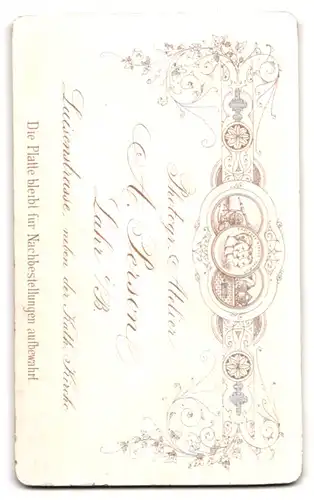 Photogr. Atelier
A. Person
Lahr i/B.
Luisenstrasse, neben der Kath. Kirche
Die Platte bleibt für Nachbestellungen aufbewahrt